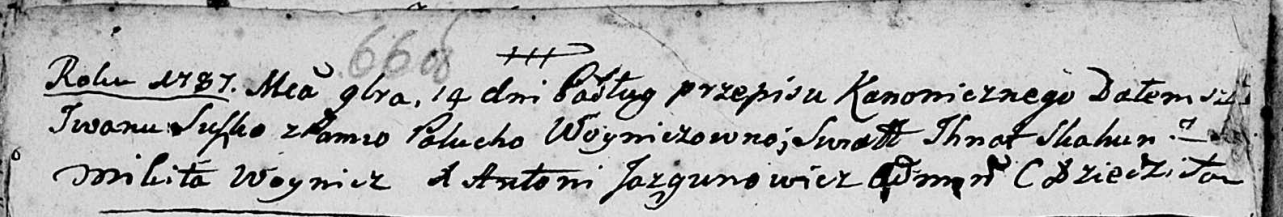 660b
Roku 1787. Mca 9bra, 14 dni Podług przepisu Kanonicznego Dałem
Iwanu Suszko z Panno Polucho Woyniczowno; Swiatt Ihnat Skakun
Mikita Woynicz A Antoni Jazgunowicz Admnr C Dziedziła